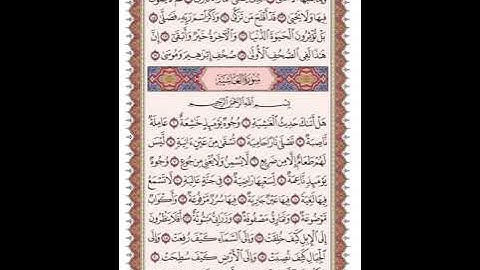 فِيهَا وَلَا يَحْيَىٰ ۝ قَدْ أَفْلَحَ مَن تَزَكَّىٰ ۝ وَذَكَرَ ٱسْمَ رَبِّهِۦ فَصَلَّىٰ ۝
بَلْ تُؤْثِرُونَ ٱلْحَيَوٰةَ ٱلدُّنْيَا ۝ وَٱلْـَٔاخِرَةُ خَيْرٌ وَأَبْقَىٰٓ ۝ إِنَّ
هَـٰذَا لَفِى ٱلصُّحُفِ ٱلْأُولَىٰ ۝ صُحُفِ إِبْرَٰهِيمَ وَمُوسَىٰ ۝
سُورَةُ ٱلْغَاشِيَةِ
بِسْمِ ٱللَّهِ ٱلرَّحْمَـٰنِ ٱلرَّحِيمِ
هَلْ أَتَىٰكَ حَدِيثُ ٱلْغَـٰشِيَةِ ۝ وُجُوهٌ يَوْمَئِذٍ خَـٰشِعَةٌ ۝ عَامِلَةٌ
نَّاصِبَةٌ ۝ تَصْلَىٰ نَارًا حَامِيَةً ۝ تُسْقَىٰ مِنْ عَيْنٍ ءَانِيَةٍ ۝ لَّيْسَ
لَهُمْ طَعَامٌ إِلَّا مِن ضَرِيعٍ ۝ لَّا يُسْمِنُ وَلَا يُغْنِى مِن جُوعٍ ۝ وُجُوهٌ
يَوْمَئِذٍ نَّاعِمَةٌ ۝ لِّسَعْيِهَا رَاضِيَةٌ ۝ فِى جَنَّةٍ عَالِيَةٍ ۝ لَّا تَسْمَعُ
فِيهَا لَـٰغِيَةً ۝ فِيهَا عَيْنٌ جَارِيَةٌ ۝ فِيهَا سُرُرٌ مَّرْفُوعَةٌ ۝ وَأَكْوَابٌ
مَّوْضُوعَةٌ ۝ وَنَمَارِقُ مَصْفُوفَةٌ ۝ وَزَرَابِىُّ مَبْثُوثَةٌ ۝ أَفَلَا يَنظُرُونَ
إِلَى ٱلْإِبِلِ كَيْفَ خُلِقَتْ ۝ وَإِلَى ٱلسَّمَآءِ كَيْفَ رُفِعَتْ ۝ وَإِلَى
ٱلْجِبَالِ كَيْفَ نُصِبَتْ ۝ وَإِلَى ٱلْأَرْضِ كَيْفَ سُطِحَتْ ۝